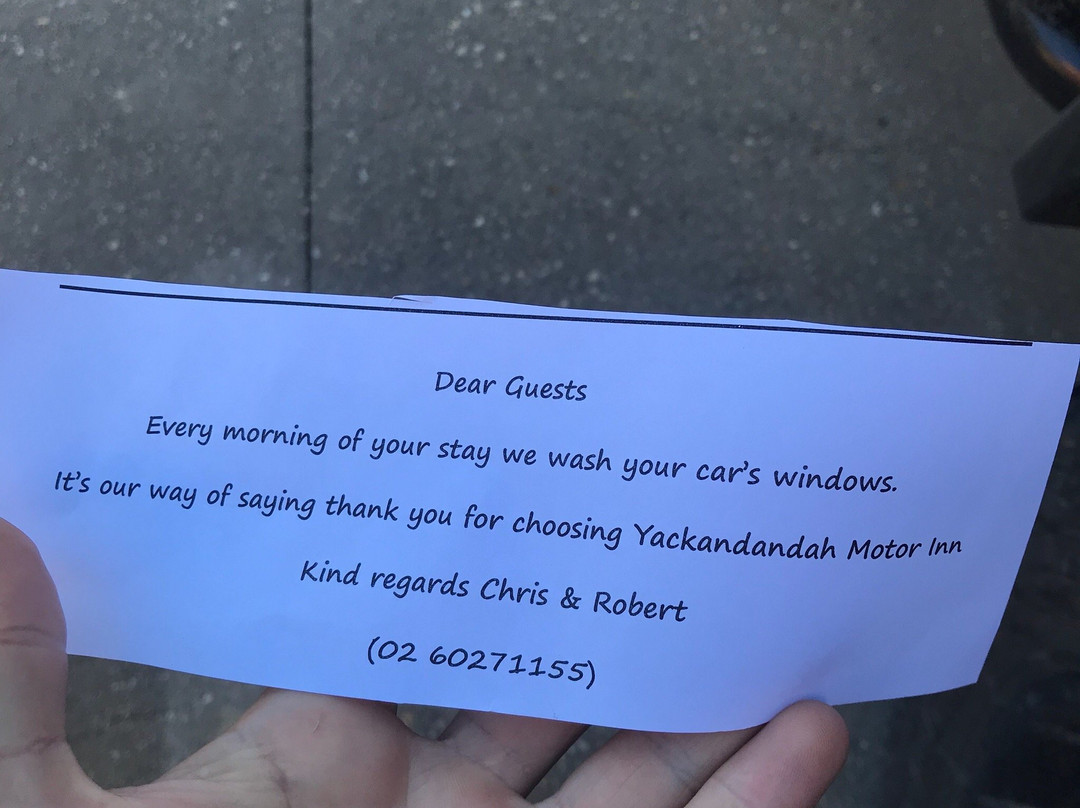 Dear Guests
Every morning of your stay we wash your car's windows.
It's our way of saying thank you for choosing Yackandandah Motor Inn
Kind regards Chris & Robert
(02 60271155)